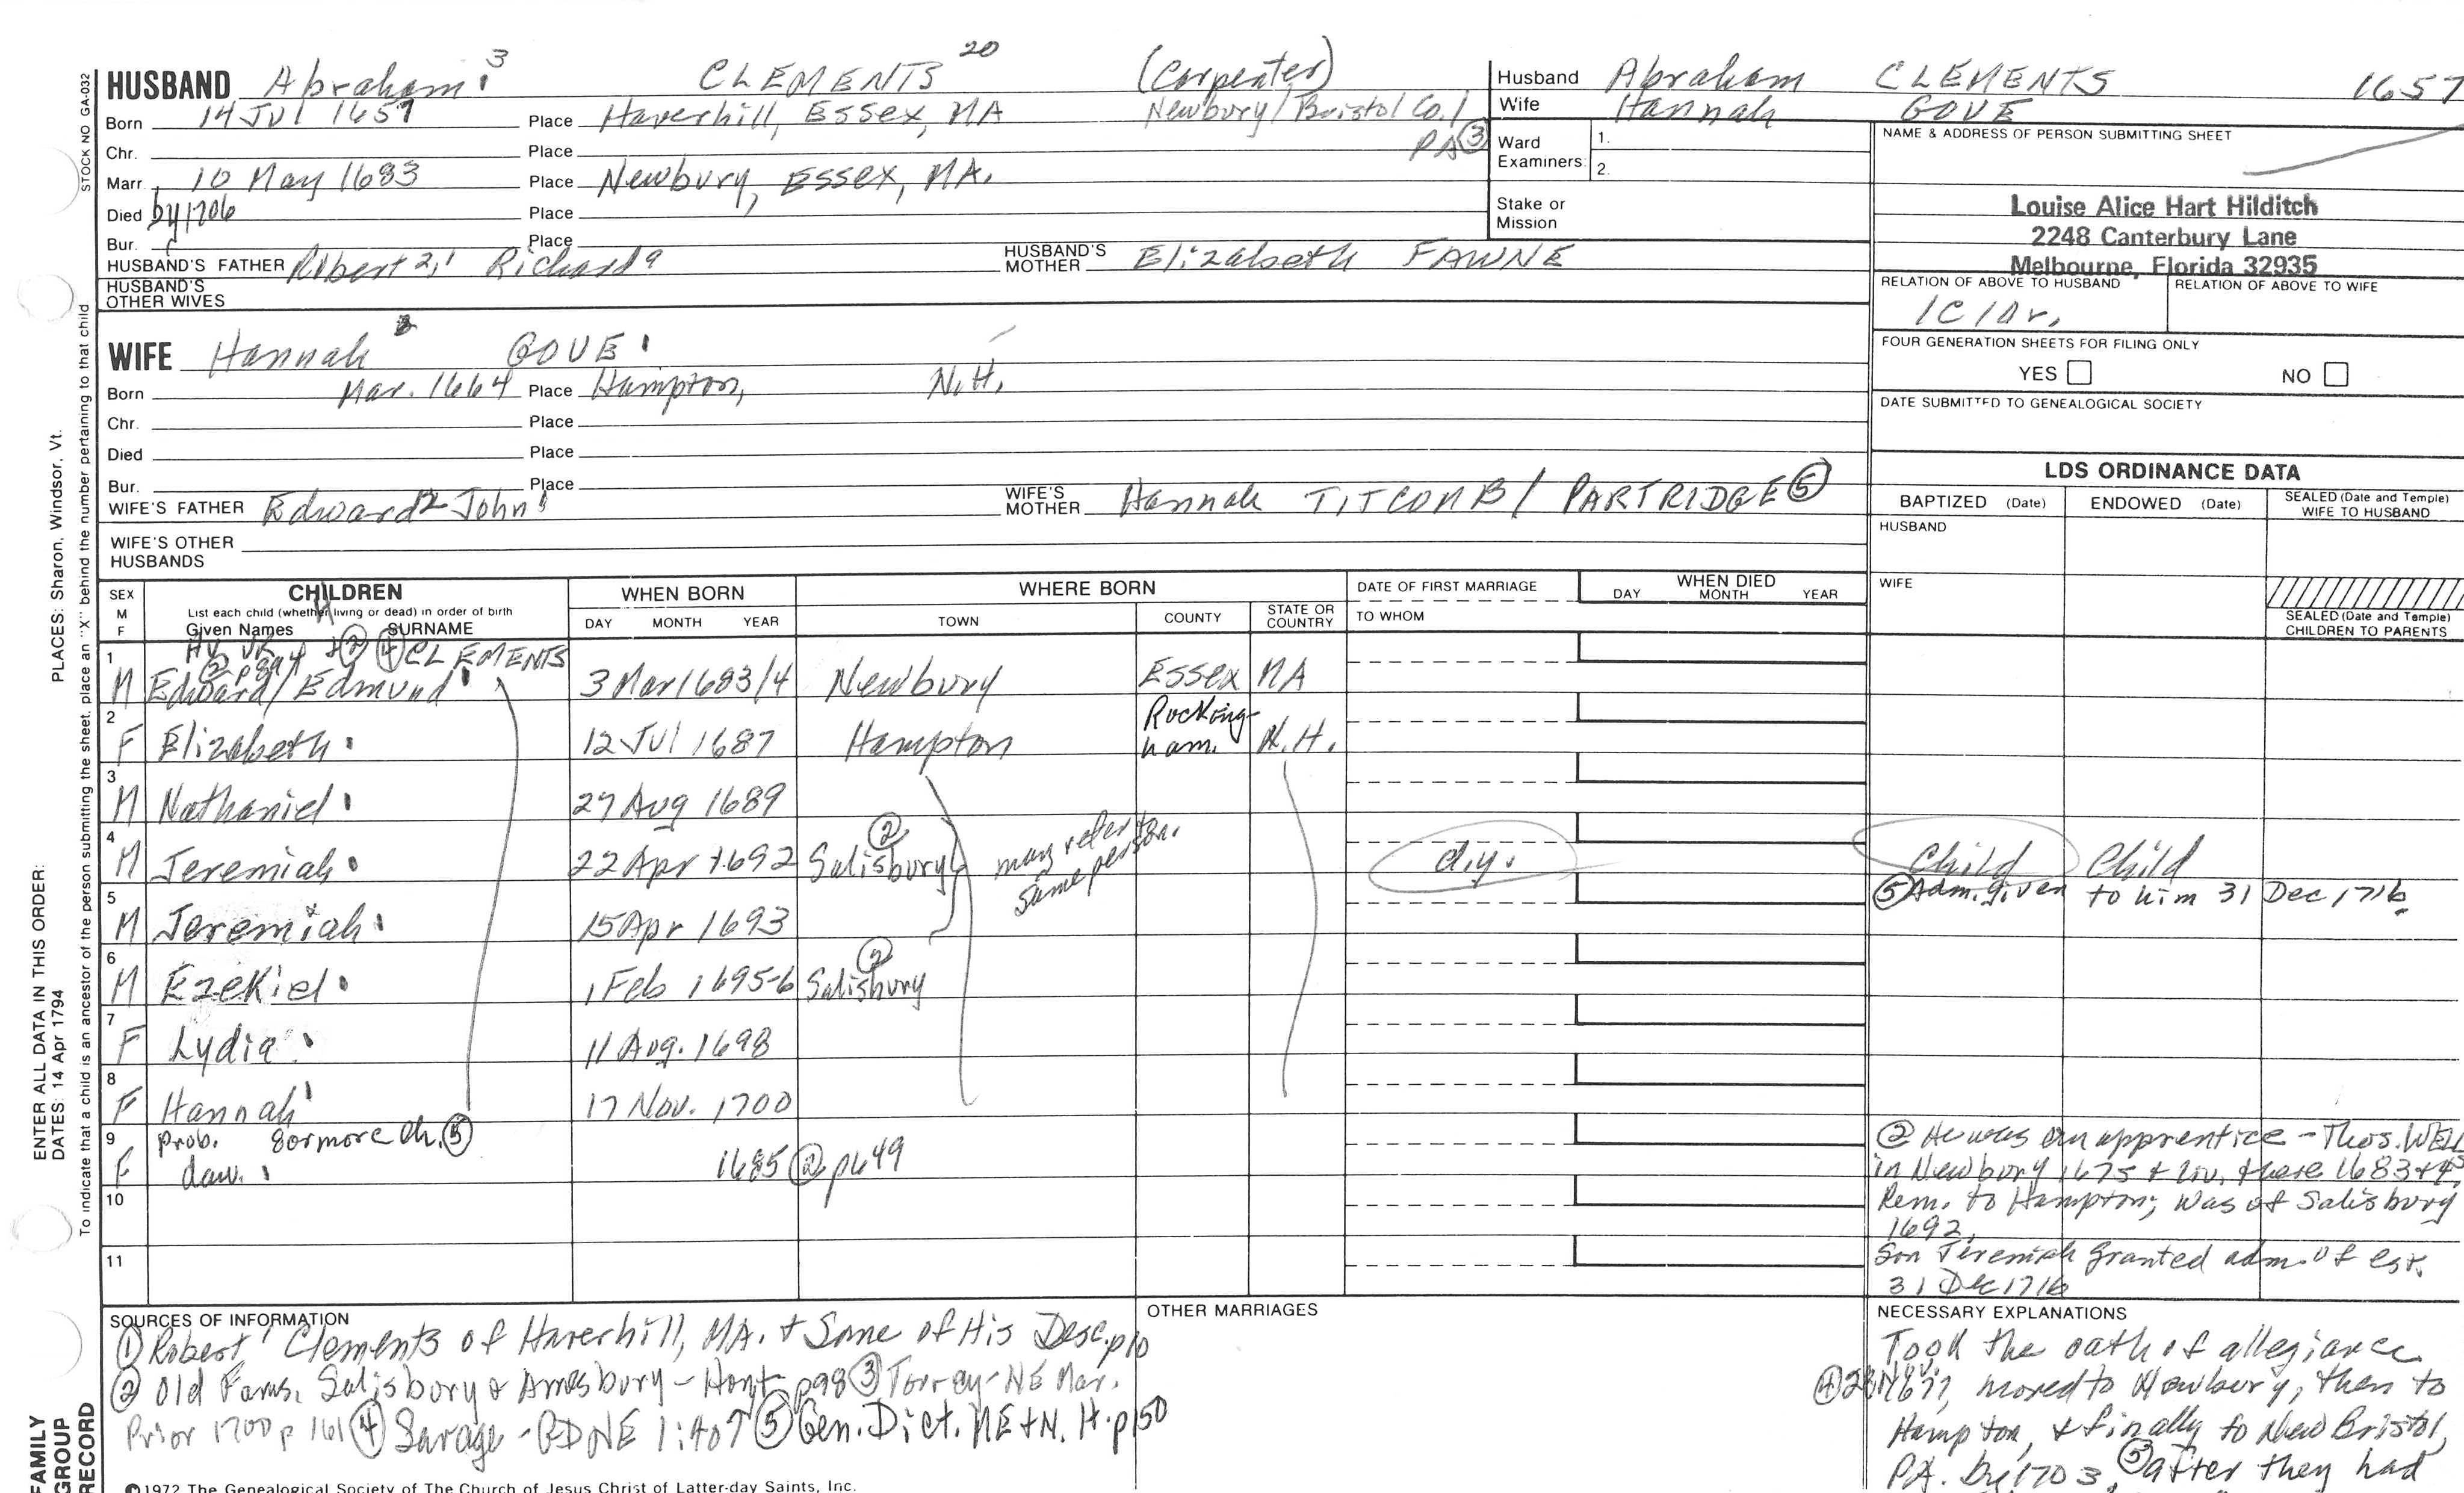 STOCK NO GA-032
PLACES: Sharon, Windsor, Vt.
ENTER ALL DATA IN THIS ORDER:
DATES: 14 Apr 1794
To indicate that a child is an ancestor of the person submitting the sheet, place an "X" behind the number pertaining to that child
FAMILY
GROUP
RECORD
HUSBAND Abraham 3 CLEMENTS 20 (Carpenter)
Born 14 Jul 1657 Place Haverhill, Essex, MA Newbury / Bristol Co. / PA ③
Chr. Place
Marr. 10 May 1683 Place Newbury, Essex, MA.
Died by 1706 Place
Bur. Place
HUSBAND'S FATHER Robert 2, 1 HUSBAND'S MOTHER Elizabeth FAWNE
HUSBAND'S OTHER WIVES
Husband Abraham CLEMENTS 1657
Wife Hannah GOVE
Ward Examiners: 1.
2.
Stake or Mission
NAME & ADDRESS OF PERSON SUBMITTING SHEET
Louise Alice Hart Hilditch
2248 Canterbury Lane
Melbourne, Florida 32935
RELATION OF ABOVE TO HUSBAND RELATION OF ABOVE TO WIFE
1C 10r.
FOUR GENERATION SHEETS FOR FILING ONLY
YES NO
DATE SUBMITTED TO GENEALOGICAL SOCIETY
WIFE Hannah 3 GOVE
Born Mar. 1664 Place Hampton, N.H.
Chr. Place
Died Place
Bur. Place
WIFE'S FATHER Edward 2 John 1 WIFE'S MOTHER Hannah TITCOMB / PARTRIDGE ⑤
WIFE'S OTHER HUSBANDS
LDS ORDINANCE DATA
BAPTIZED (Date) ENDOWED (Date) SEALED (Date and Temple) WIFE TO HUSBAND
HUSBAND
WIFE
SEALED (Date and Temple) CHILDREN TO PARENTS
SEX M F CHILDREN WHEN BORN WHERE BORN DATE OF FIRST MARRIAGE WHEN DIED
List each child (whether living or dead) in order of birth
Given Names SURNAME DAY MONTH YEAR TOWN COUNTY STATE OR COUNTRY TO WHOM DAY MONTH YEAR
② ④ CLEMENTS
1 M Edward / Edmund 3 Mar 1683/4 Newbury Essex MA
2 F Elizabeth 12 Jul 1687 Hampton Rockingham. N.H.
3 M Nathaniel 29 Aug 1689
4 M Jeremiah 22 Apr 1692 Salisbury ② may refer to same person. d.y. Child Child
⑤ Adm. given to him 31 Dec 1716
5 M Jeremiah 15 Apr 1693
6 M Ezekiel 1 Feb 1695-6 Salisbury ②
7 F Lydia 11 Aug. 1698
8 F Hannah 17 Nov. 1700
9 Prob. 8 or more ch. ⑤
F dau. 1685 ② p649
10
11
② He was an apprentice - Thos. WELL
in Newbury 1675 & liv. there 1683 & 4
Rem. to Hampton; was of Salisbury
1692.
Son Jeremiah granted adm. of est.
31 Dec 1716
SOURCES OF INFORMATION
① Robert 1 Clements of Haverhill, MA. & Some of His Desc. p10
② Old Fams. Salisbury & Amesbury - Hoyt p98 ③ Torrey - NE Mar.
Prior 1700 p 161 ④ Savage - GDNE 1:407 ⑤ Gen. Dict. NE & N.H. p150
OTHER MARRIAGES
NECESSARY EXPLANATIONS
Took the oath of allegiance
④ 1677, moved to Newbury, then to
Hampton, & finally to New Bristol,
PA. by 1703, ⑤ after they had
©1972 The Genealogical Society of The Church of Jesus Christ of Latter-day Saints, Inc.